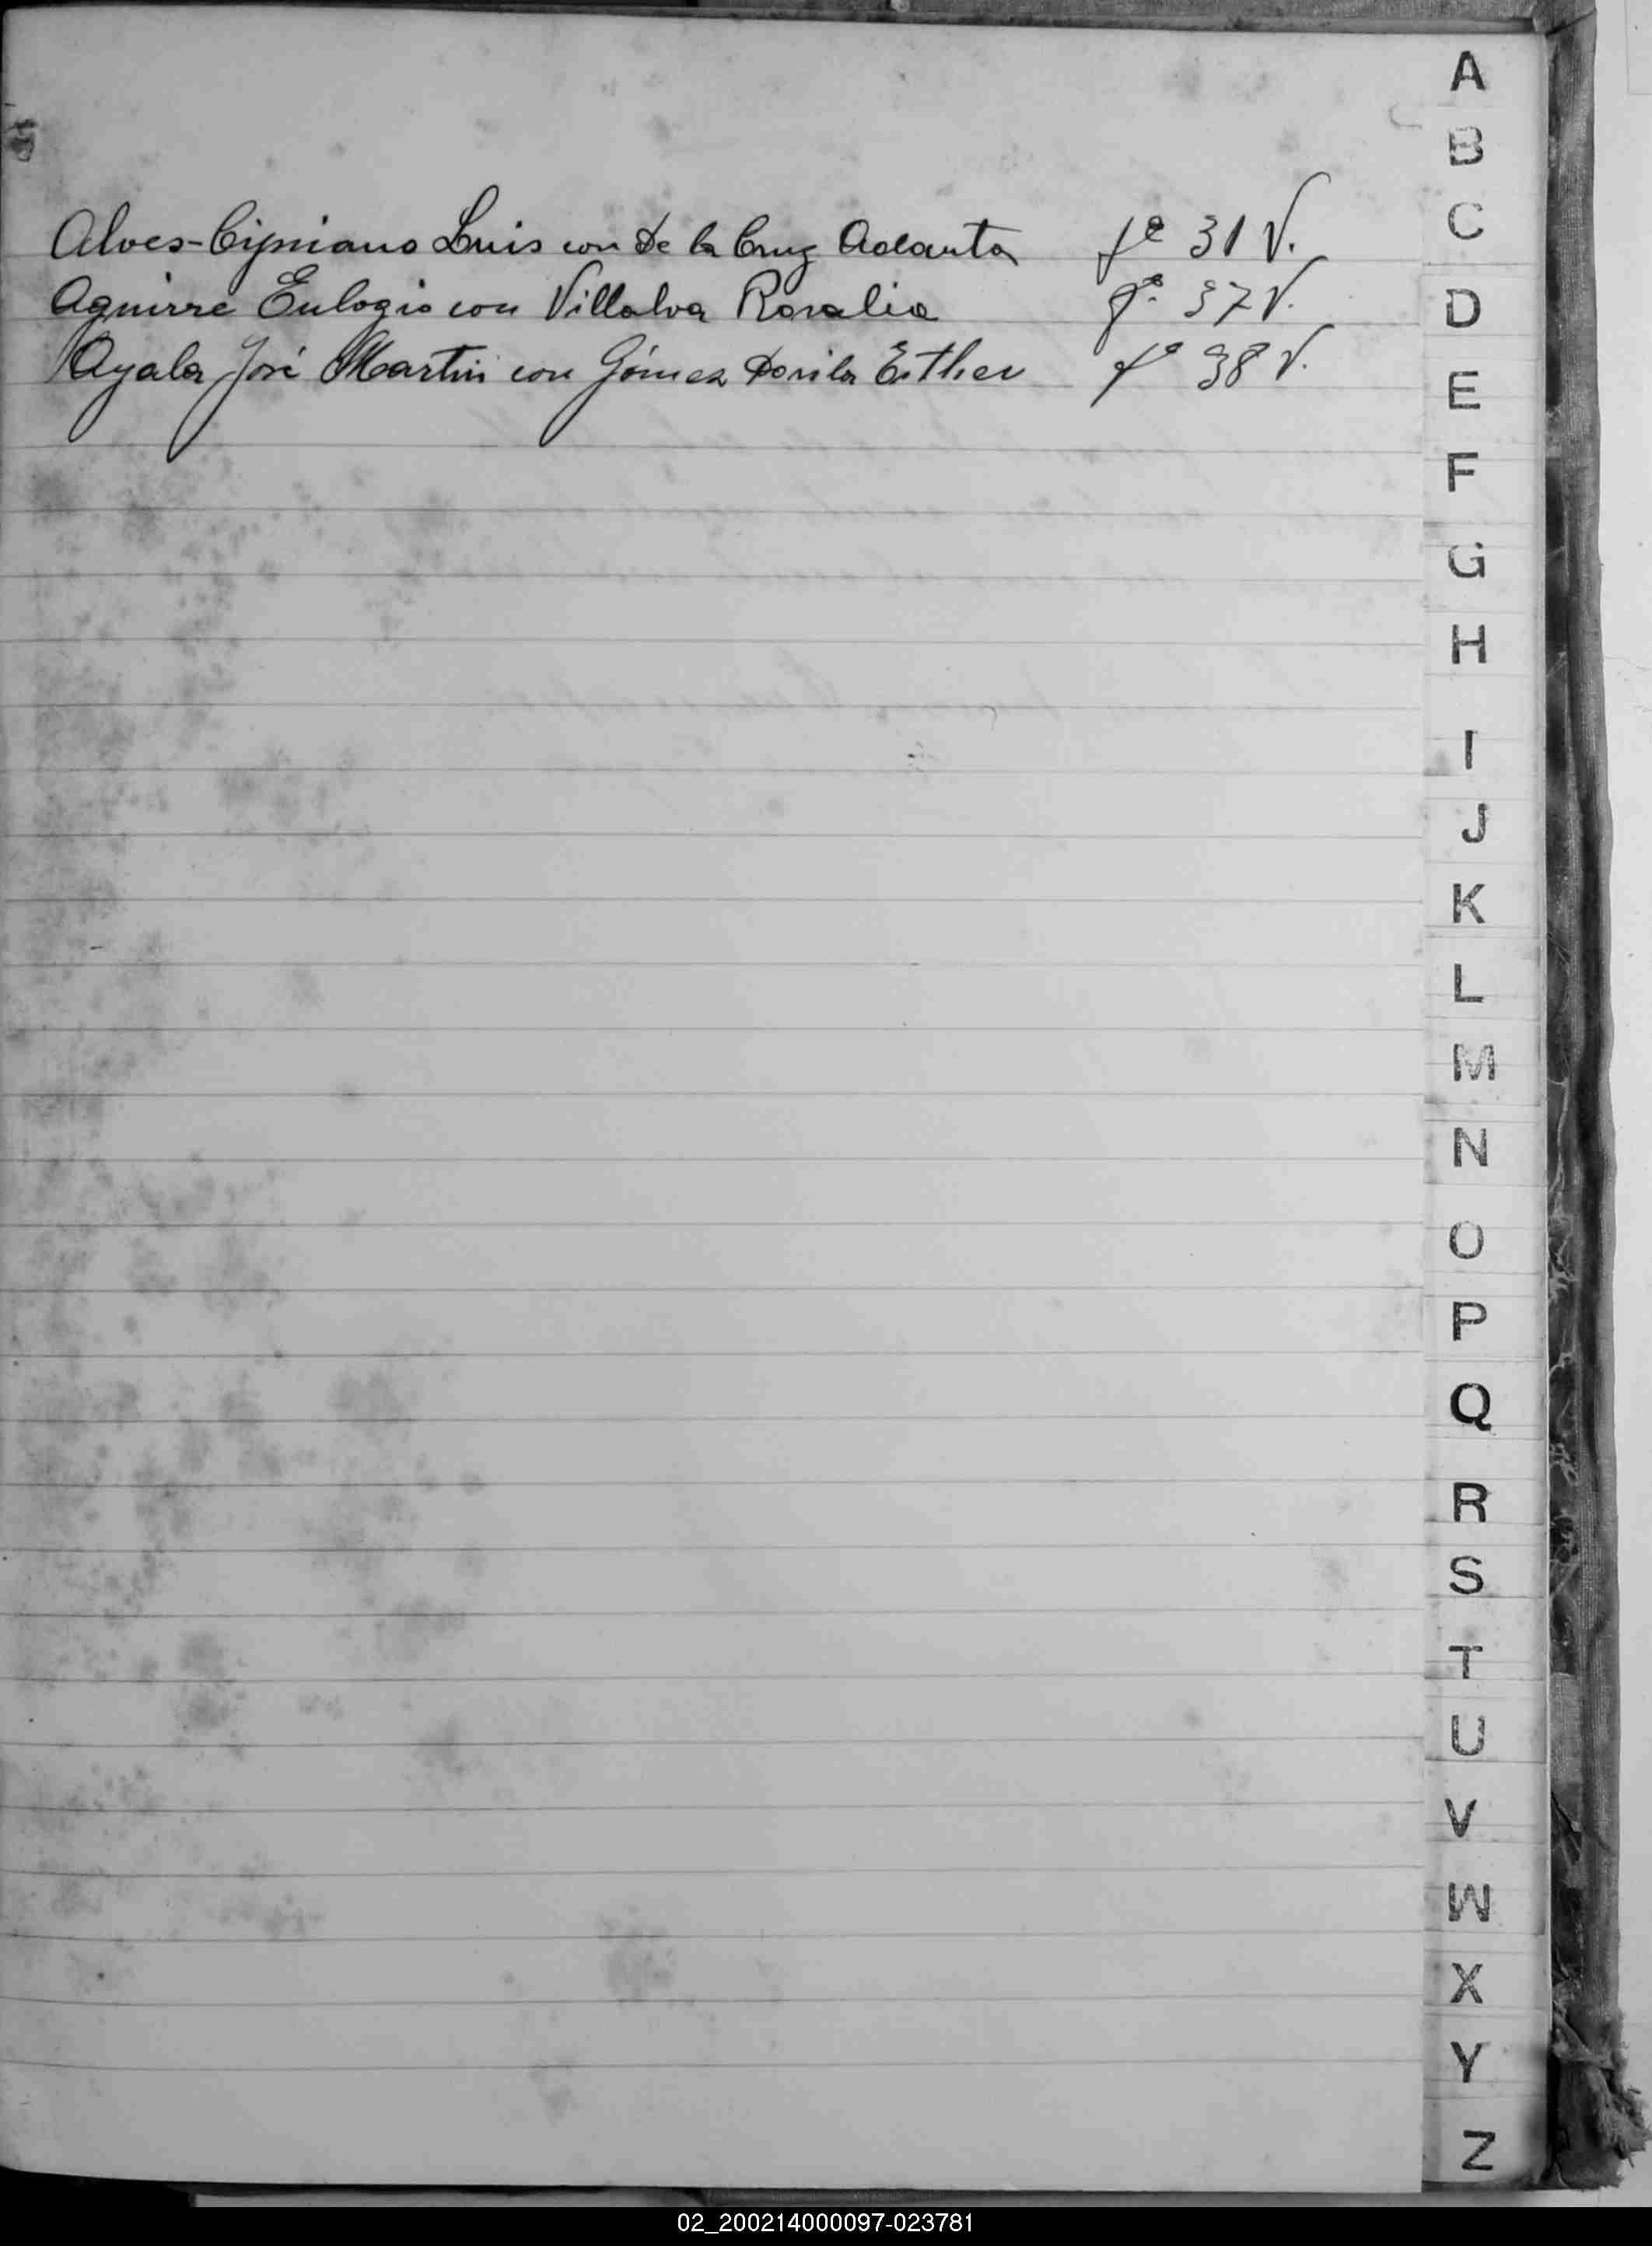 Alves-Cipriano Luis con De la Cruz fº 31 V.
Aguirre Eulogio con Villalva Rosalia fº. 37 V.
Ayala José Martin con Gómez Davila Esther fº 38 V.
A
B
C
D
E
F
G
H
I
J
K
L
M
N
O
P
Q
R
S
T
U
V
W
X
Y
Z
02_200214000097-023781